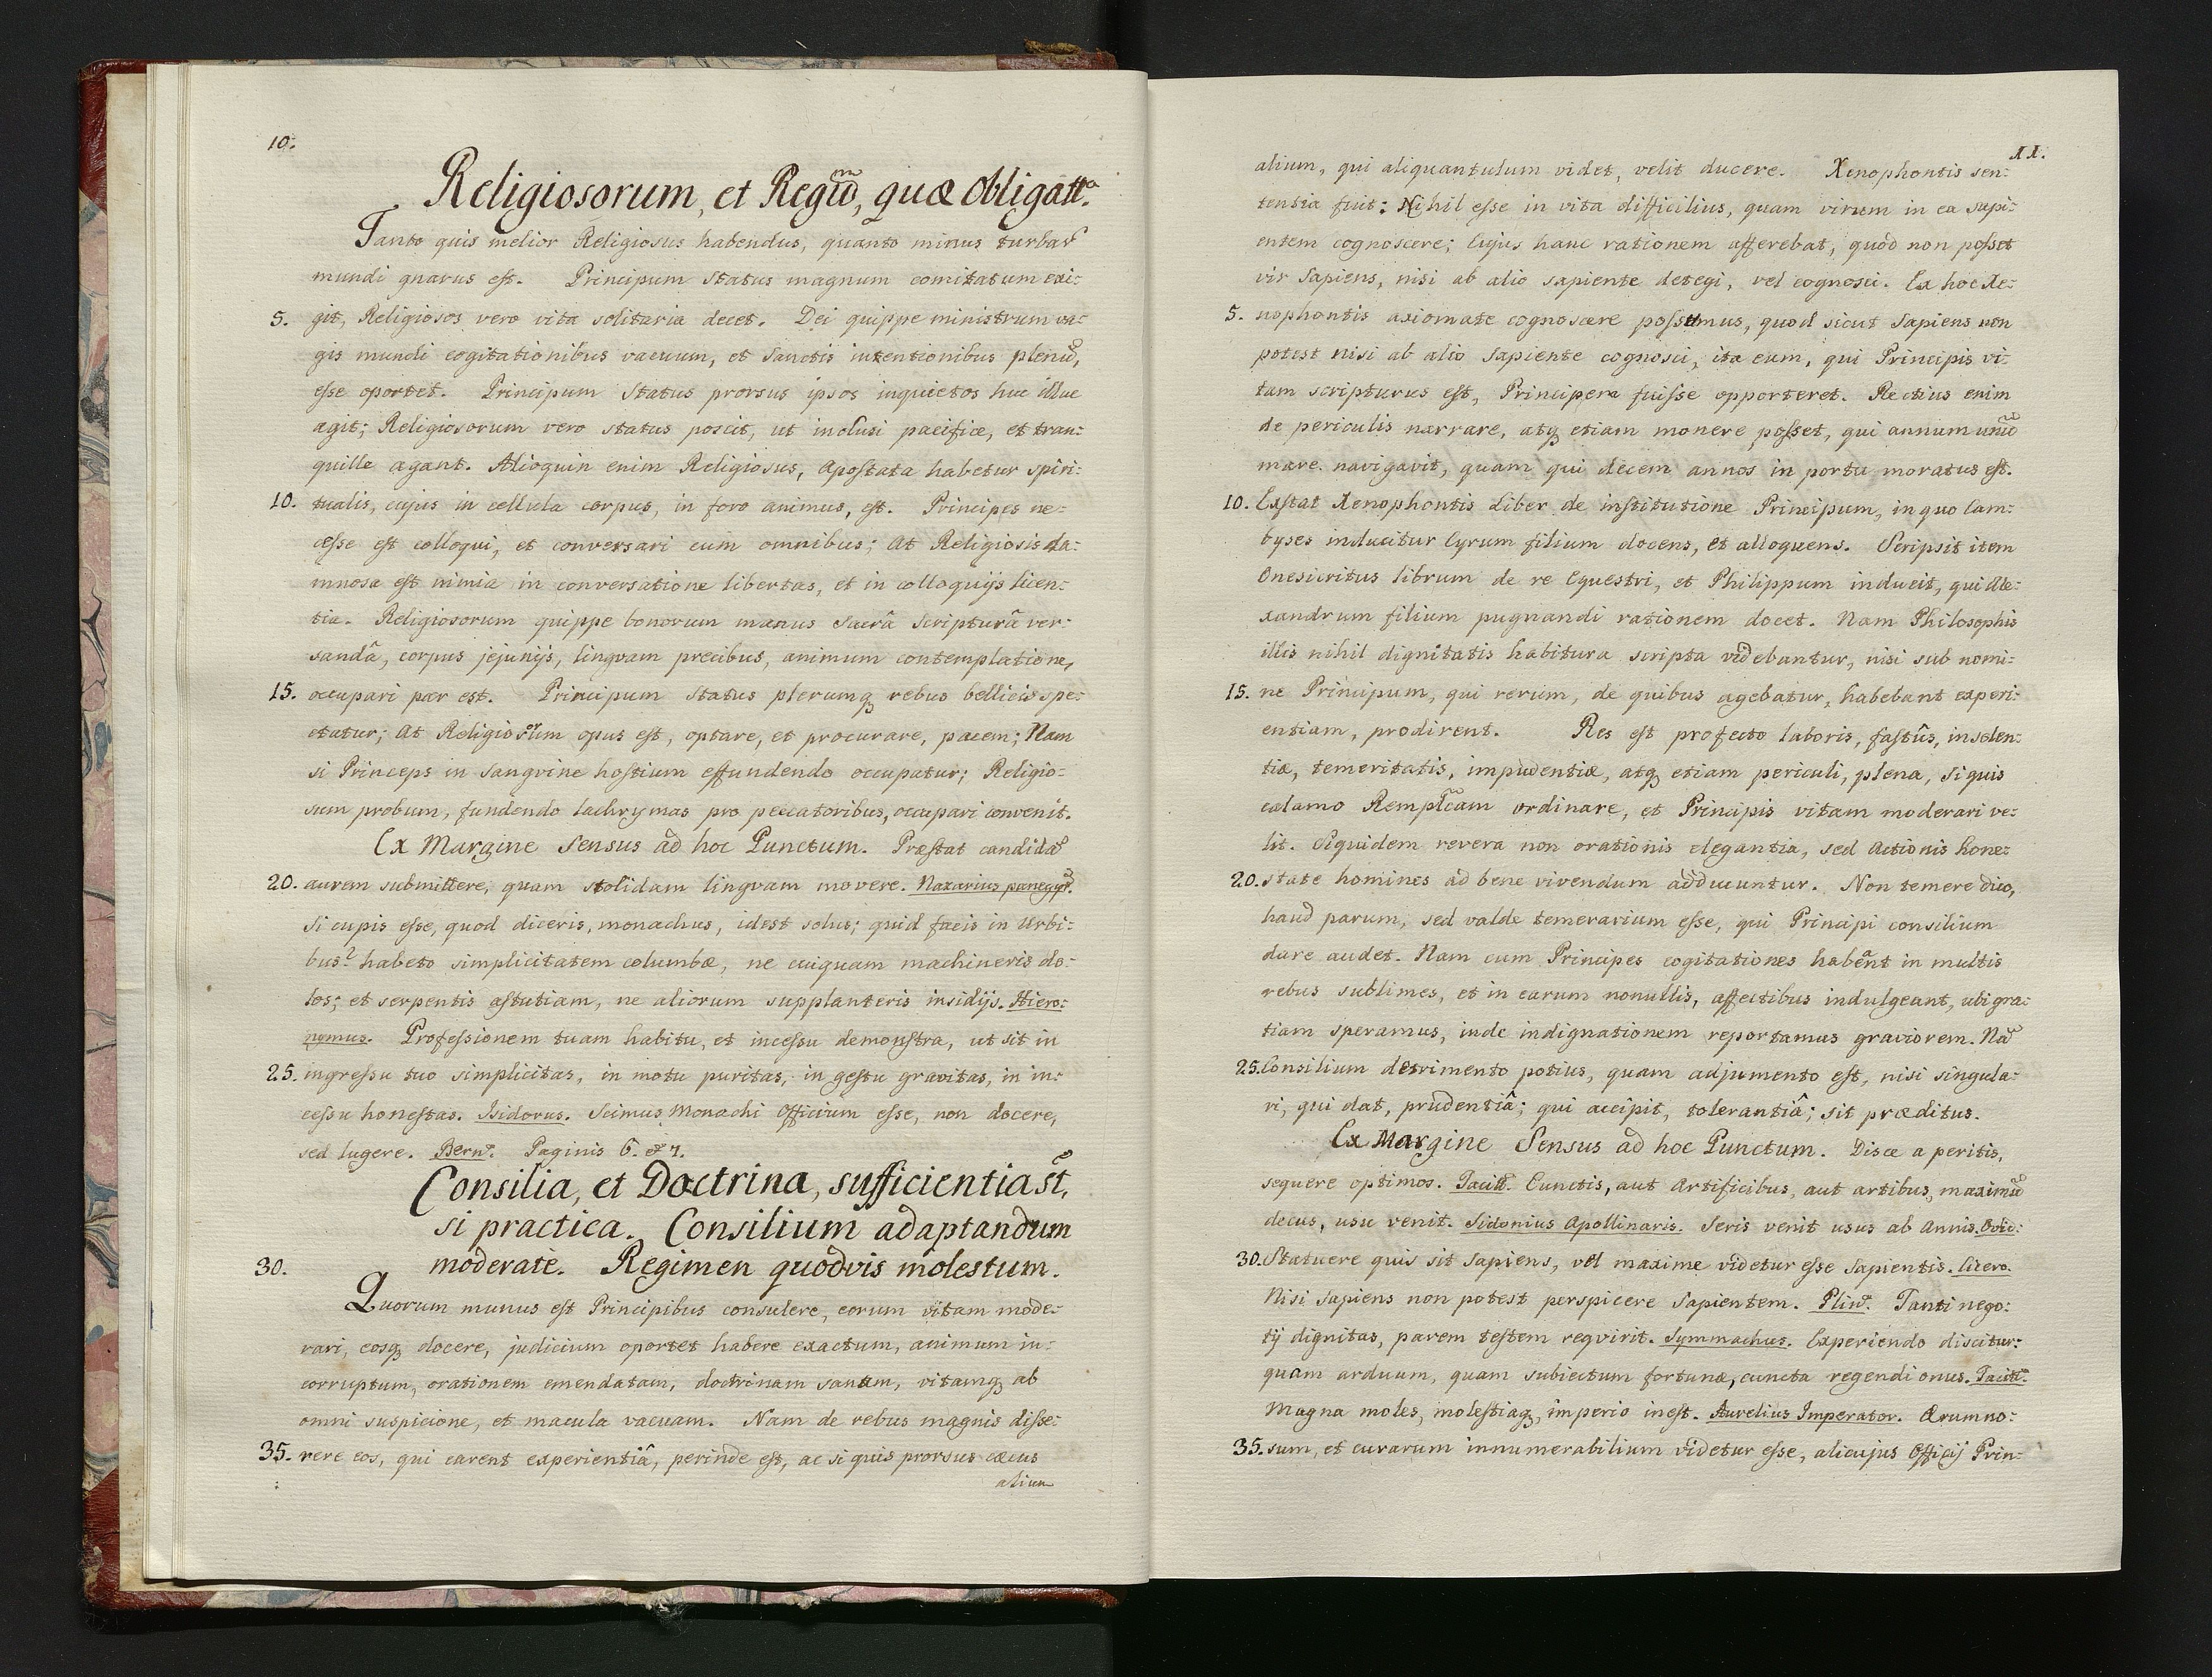 10.
Religiosorum, et Regum, quæ obligatt.a
Tanto quis melior Religiosus habendus, quanto minus turbar
mundi gnarus est. Principum status magnum comitatum exi:
5. git, Religiosos vero vita solitaria decet. Dei quippe ministrum va:
gis mundi cogitationibus vacuum, et Sanctis intentionibus plenũ,
esse oportet. Principum Status prorsus ipsos inquietos huc illuc
agit; Religiosorum vero status poscit, ut inclusi pacifice, et tran:
quille agant. Alioquin enim Religiosus, Apostata habetur spiri:
10. tualis, cujus in cellula corpus, in foro animus, est. Principes ne:
cesse est colloqui, et conversari cum omnibus; At Religiosis da:
mnosa est nimia in conversatione libertas, et in colloquijs licen:
tia. Religiosorum quippe bonorum manus Sacrâ Scripturâ ver:
sandâ, corpus jejunijs, linguam precibus, animum contemplatione,
15. occupari par est. Principum Status plerumq rebus bellicis spe:
ctatur; At Religiosorum opus est, optare, et procurare, pacem; Nam
si Princeps in Sangvine hostium effundendo occupatur; Religio:
sum probum, fundendo lachrymas pro peccatoribus, occupari convenit.
Ex Margine Sensus ad hoc Punctum. Præstat candidã
20. aurem submittere, quam stolidam lingvam movere. Nazarius panegyr.
Si cupis esse, quod diceris, monachus, idest solus; quid facis in Urbi:
bus? habeto simplicitatem columbæ, ne cuiquam machineris do:
los; et serpentis astutiam, ne aliorum supplanteris insidijs. Hiero:
nymus. Professionem tuam habitu, et incessu demonstra, ut sit in
25. ingressu tuo simplicitas, in motu puritas, in gestu gravitas, in in:
cessu honestas. Isidorus. Scimus Monachi Officium esse, non docere,
sed lugere. Bern. Paginis 6. et 7.
Consilia, et Doctrina, sufficientia st̃,
si practica. Consilium adaptandum
30. moderatè. Regimen quodvis molestum.
Quorum munus est Principibus consulere, eorum vitam mode:
rari, eosq docere, judicium oportet habere exactum, animum in:
corruptum, orationem emendatam, doctrinam sanam, vitamq ab
omni suspicione, et macula vacuam. Nam de rebus magnis disse:
35. rere eos, qui carent experientiâ, perinde est, ac si quis prorsus cæcus
alium
11.
alium, qui aliquantulum videt, velit ducere. Xenophontis sen:
tentia fuit: Nihil esse in vita difficilius, quam virum in ea sapi:
entem cognoscere; Cujus hanc rationem afferebat, quòd non posset
vir Sapiens, nisi ab alio sapiente detegi, vel cognosci. Ex hoc Xe:
5. nophontis axiomate cognoscere possumus, quod sicut Sapiens non
potest nisi ab alio Sapiente cognosci, ita eum, qui Principis vi:
tam scripturus est, Principem fuisse opporteret. Rectius enim
de periculis narrare, atq etiam monere posset, qui annum unũ
mare navigavit, quam qui decem annos in portu moratus est.
10. Exstat Xenophontis Liber de institutione Principum, in quo Cam:
byses inducitur Cyrum filium docens, et alloquens. Scripsit item
Onesicritus librum de re Equestri, et Philippum inducit, qui Ale:
xandrum filium pugnandi rationem docet. Nam Philosophis
illis nihil dignitatis habitura scripta videbantur, nisi sub nomi:
15. ne Principum, qui rerum, de quibus agebatur, habebant experi:
entiam, prodirent. Res est profecto laboris, fastûs, insolen:
tiæ, temeritatis, impudentiæ, atq etiam periculi, plena, si quis
calamo Remplcam ordinare, et Principis vitam moderari ve:
lit. Siquidem revera non orationis elegantia, sed Actionis hone:
20. state homines ad bene vivendum adducuntur. Non temere dico,
haud parum, sed valde temerarium esse, qui Principi consilium
dare audet. Nam cum Principes cogitationes habeant in multis
rebus sublimes, et in earum nonullis, affectibus indulgeant, ubi gra:
tiam speramus, inde indignationem reportamus graviorem. Nã
25. Consilium detrimento potius, quam adjumento est, nisi singula:
ri, qui dat, prudentiâ; qui accipit, tolerantiâ; sit præditus.
Ex Margine Sensus ad hoc Punctum. Disce a peritis,
sequere optimos. Tacitt. Cunctis, aut Artificibus, aut artibus, maximũ
decus, usu venit. Sidonius Apollinaris. Seris venit usus ab Annis. Ovid:
30. Statuere quis sit Sapiens, vel maxime videtur esse Sapientis. Cicero.
Nisi Sapiens non potest perspicere Sapientem. Plin. Tanti nego:
tij dignitas, parem testem reqvirit. Symmachus. Experiendo discitur:
quam arduum, quam subiectum fortunæ, cuncta regendi onus. Tacitt.
Magna moles, molestiaq, imperio inest. Aurelius Imperator. Ærumno:
35. sum, et curarum innumerabilium videtur esse, alicujus Officij Prin: